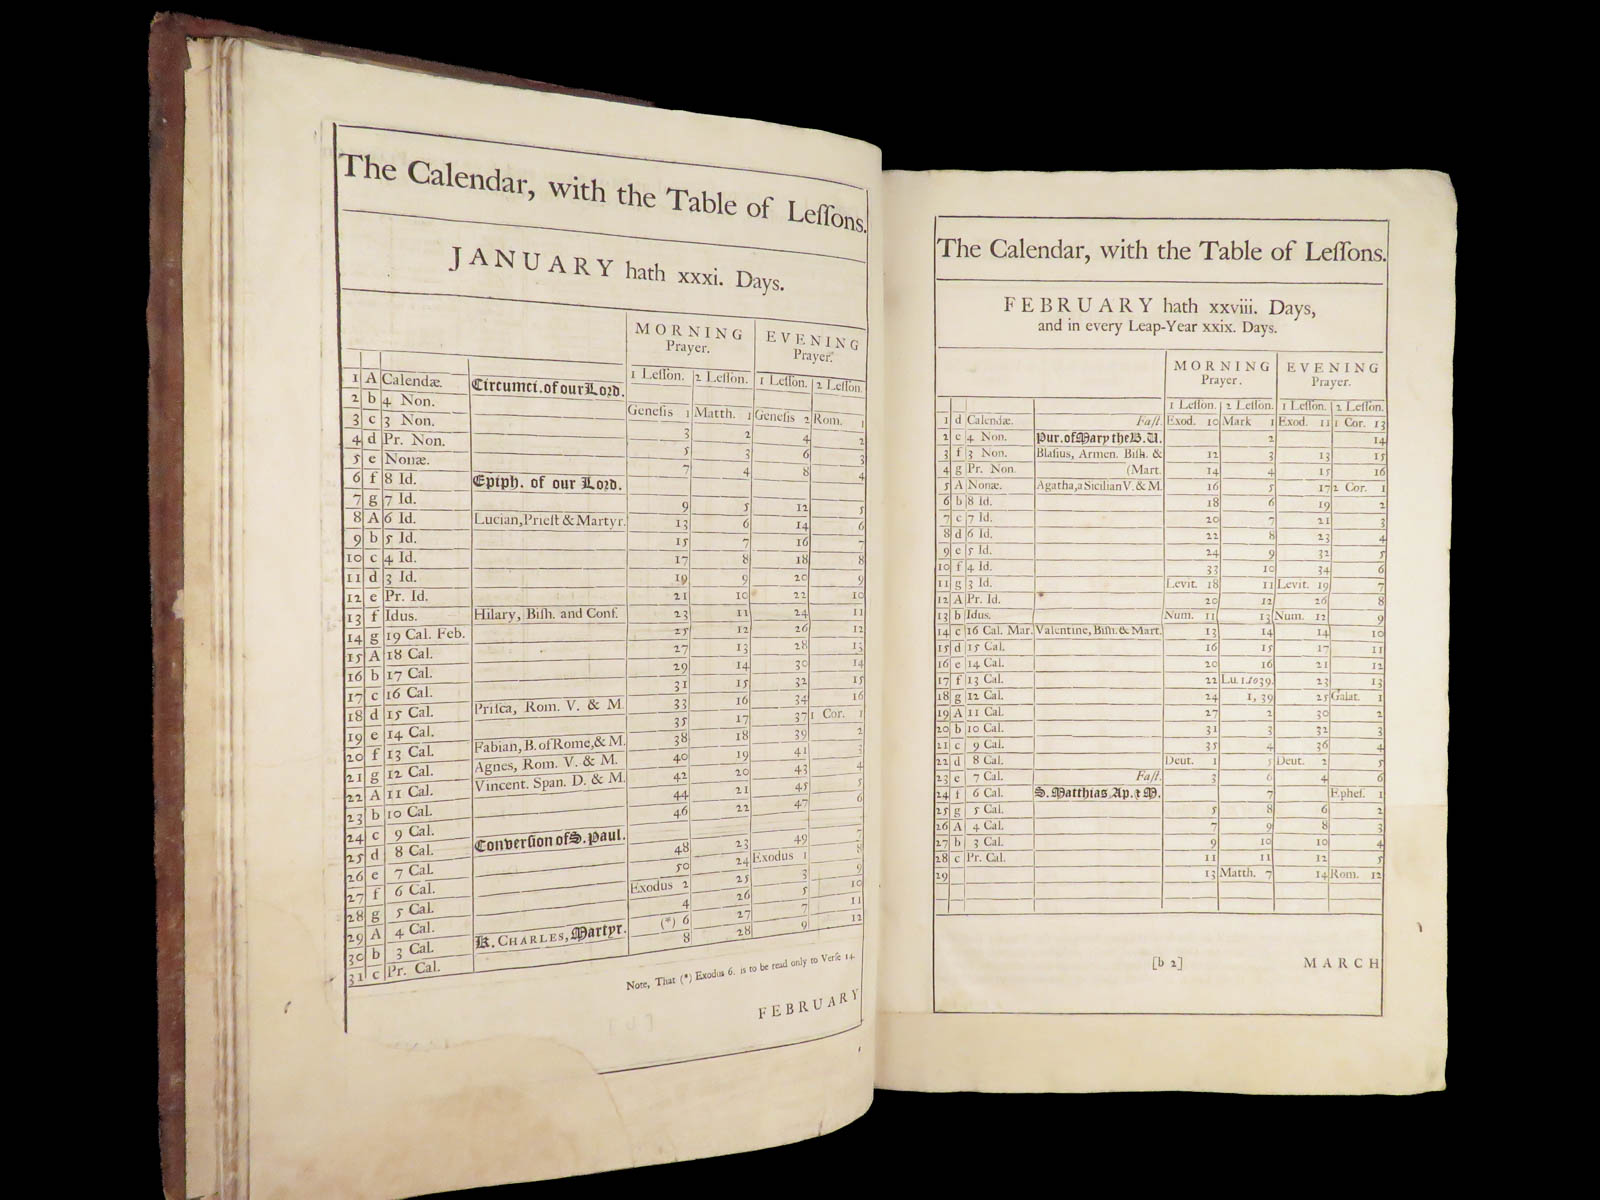 The Calendar, with the Table of Leſſons.
JANUARY hath xxxi. Days.
MORNING Prayer. EVENING Prayer.
1 Leſſon. 2 Leſſon. 1 Leſſon. 2 Leſſon.
1 A Calendæ. Circumci. of our Lord.
2 b 4 Non. Geneſis 1 Matth. 1 Geneſis 2 Rom. 1
3 c 3 Non. 3 2 4 2
4 d Pr. Non. 5 3 6 3
5 e Nonæ. 7 4 8 4
6 f 8 Id. Epiph. of our Lord.
7 g 7 Id. 9 5 12 5
8 A 6 Id. Lucian, Prieſt & Martyr. 13 6 14 6
9 b 5 Id. 15 7 16 7
10 c 4 Id. 17 8 18 8
11 d 3 Id. 19 9 20 9
12 e Pr. Id. 21 10 22 10
13 f Idus. Hilary, Biſh. and Conf. 23 11 24 11
14 g 19 Cal. Feb. 25 12 26 12
15 A 18 Cal. 27 13 28 13
16 b 17 Cal. 29 14 30 14
17 c 16 Cal. 31 15 32 15
18 d 15 Cal. Priſca, Rom. V. & M. 33 16 34 16
19 e 14 Cal. 35 17 37 1 Cor. 1
20 f 13 Cal. Fabian, B. of Rome, & M. 38 18 39 2
21 g 12 Cal. Agnes, Rom. V. & M. 40 19 41 3
22 A 11 Cal. Vincent. Span. D. & M. 42 20 43 4
23 b 10 Cal. 44 21 45 5
24 c 9 Cal. 46 22 47 6
25 d 8 Cal. Converſion of S. Paul.
26 e 7 Cal. 48 23 49 7
27 f 6 Cal. 50 24 Exodus 1 8
28 g 5 Cal. Exodus 2 25 3 9
29 A 4 Cal. 4 26 5 10
30 b 3 Cal. K. CHARLES, Martyr. (*) 6 27 7 11
31 c Pr. Cal. 8 28 9 12
Note, That (*) Exodus 6. is to be read only to Verſe 14.
FEBRUARY
The Calendar, with the Table of Leſſons.
FEBRUARY hath xxviii. Days,
and in every Leap-Year xxix. Days.
MORNING Prayer. EVENING Prayer.
1 Leſſon. 2 Leſſon. 1 Leſſon. 2 Leſſon.
1 d Calendæ. Faſt. Exod. 10 Mark 1 Exod. 11 1 Cor. 13
2 e 4 Non. Pur. of Mary the B. V. 2 14
3 f 3 Non. Blaſius, Armen. Biſh. & 12 3 13 15
4 g Pr. Non. (Mart. 14 4 15 16
5 A Nonæ. Agatha, a Sicilian V. & M. 16 5 17 2 Cor. 1
6 b 8 Id. 18 6 19 2
7 c 7 Id. 20 7 21 3
8 d 6 Id. 22 8 23 4
9 e 5 Id. 24 9 32 5
10 f 4 Id. 33 10 34 6
11 g 3 Id. Levit. 18 11 Levit. 19 7
12 A Pr. Id. 20 12 26 8
13 b Idus. Num. 11 13 Num. 12 9
14 c 16 Cal. Mar. Valentine, Biſh. & Mart. 13 14 14 10
15 d 15 Cal. 16 15 17 11
16 e 14 Cal. 20 16 21 12
17 f 13 Cal. 22 Lu. 1. to 39. 23 13
18 g 12 Cal. 24 1, 39 25 Galat. 1
19 A 11 Cal. 27 2 30 2
20 b 10 Cal. 31 3 32 3
21 c 9 Cal. 35 4 36 4
22 d 8 Cal. Deut. 1 5 Deut. 2 5
23 e 7 Cal. Faſt. 3 6 4 6
24 f 6 Cal. S. Matthias Ap. & M. 7 Epheſ. 1
25 g 5 Cal. 5 8 6 2
26 A 4 Cal. 7 9 8 3
27 b 3 Cal. 9 10 10 4
28 c Pr. Cal. 11 11 12 5
29 13 Matth. 7 14 Rom. 12
[b 2] MARCH